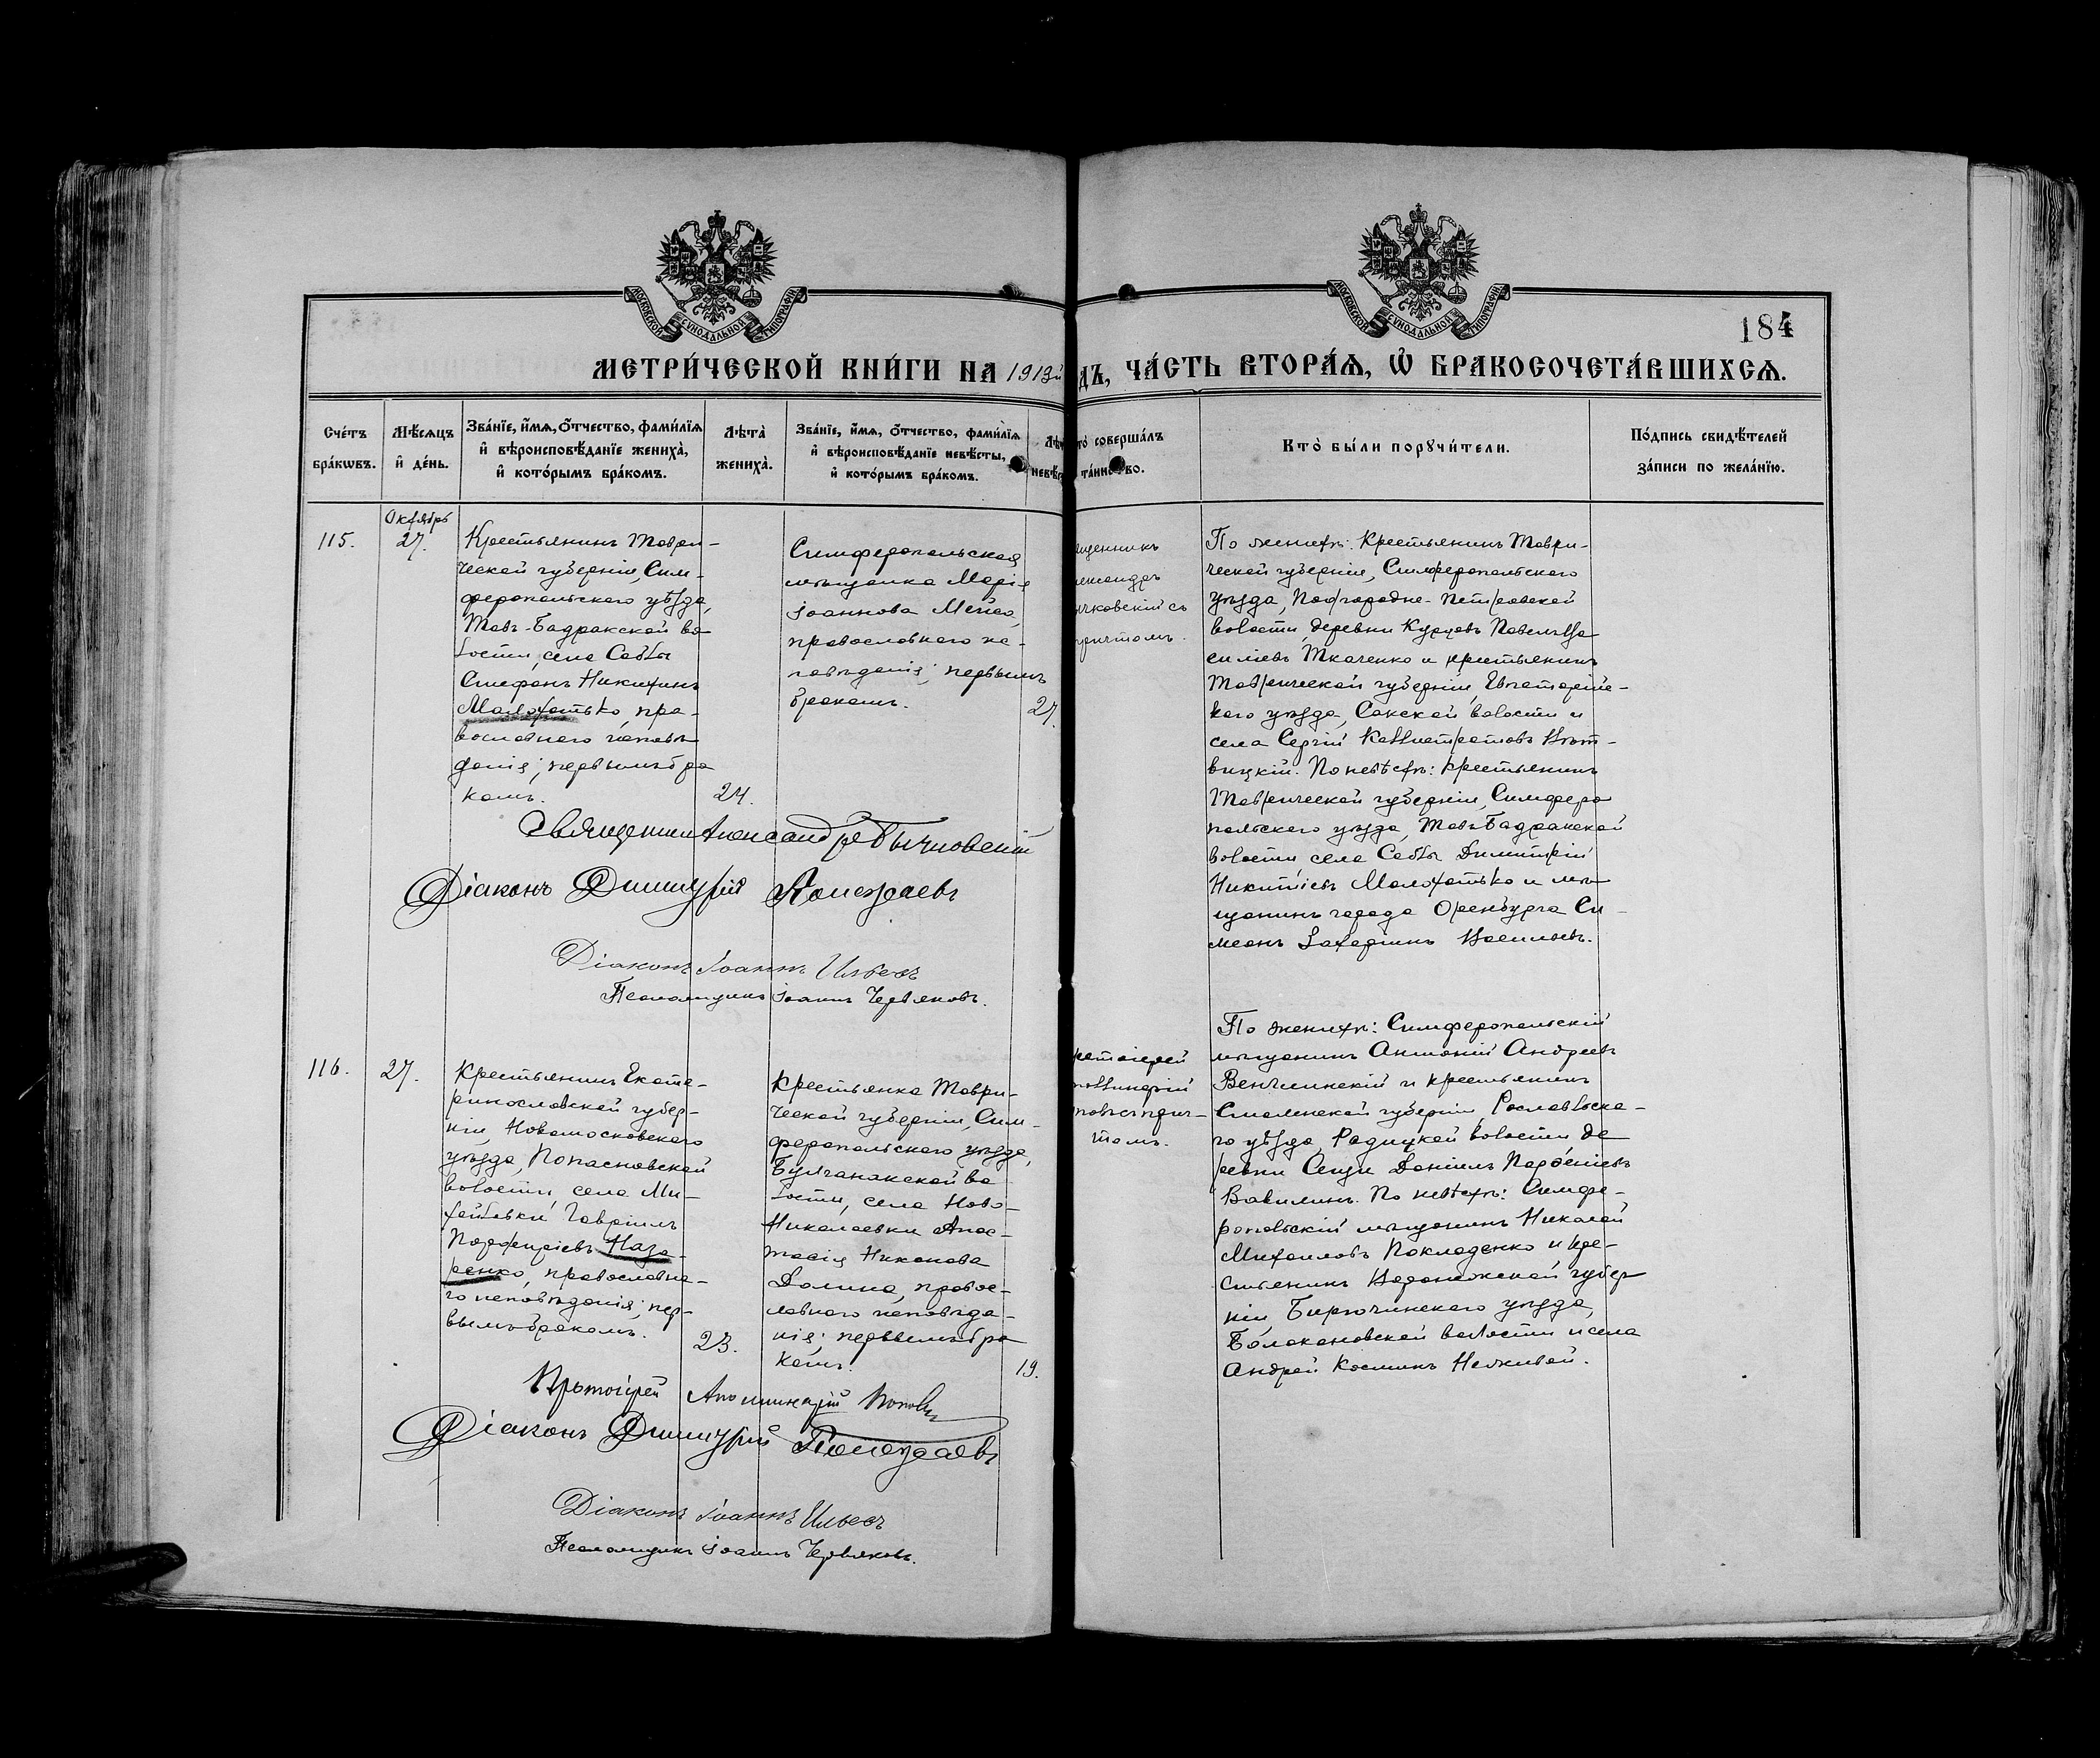 МОСКОВСКОЙ СѴНОДАЛЬНОЙ ТИПОГРАФІИ
МОСКОВСКОЙ СѴНОДАЛЬНОЙ ТИПОГРАФІИ
184
МЕТРИ́ЧЕСКОЙ КНИ́ГИ НА 1913й
ДЪ, ЧА́СТЬ ВТОРА́Я, Ѡ БРАКОСОЧЕТА́ВШИХСЯ.
Сче́тъ бра́кѡвъ.
Мѣ́сяцъ и де́нь.
Зва́нїе, и́мя, о́тчество, фами́лїя и вѣроисповѣ́данїе жениха̀, и кото́рымъ бра́комъ.
Лѣта̀ жениха̀.
Зва́нїе, и́мя, о́тчество, фами́лїя и вѣроисповѣ́данїе невѣ́сты, и кото́рымъ бра́комъ.
Лѣт
невѣс
то̀ соверша́лъ
та́инство.
Кто̀ бы́ли порꙋчи́тели.
По́дпись свидѣ́телей за́писи по жела́нїю.
115.
Октябрь
27.
Крестьянинъ Таври-
ческой губерніи, Сим-
феропольскаго уѣзда,
Тавъ-Бадракской во
лости, села Саблы
Стефанъ Никитинъ
Малохатько, пра-
вославнаго исповѣ
данія; первымъ бра
комъ.
24.
Симферопольская
мѣщанка Марія
Іоаннова
православнаго ис-
повѣданія; первымъ
бракомъ.
27.
ященникъ
лександръ
ычковскій съ
причтомъ.
По женихѣ: Крестьянинъ Таври-
ческой губерніи, Симферопольскаго
уѣзда, Подгородне-Петровской
волости, деревни Курцовъ Павелъ Ва
силіевъ Ткаченко и крестьянинъ
Таврической губерніи, Евпаторійс-
каго уѣзда, Сакской волости и
села Сергій Каллистратовъ
вицкій. По невѣстѣ: крестьянинъ
Таврической губерніи, Симферо
польскаго уѣзда, Тавъ-Бадракской
волости села Саблы Димитрій
Никитіевъ Малохатько и мѣ
щанинъ города Оренбурга Си-
меонъ Захаріинъ Васильевъ.
Священникъ Александръ Бычковскій
Діаконъ Димитрій
Діаконъ Іоаннъ Ильевъ
Псаломщикъ Іоаннъ Червяковъ.
116.
27.
Крестьянинъ Екате-
ринославской губер-
ніи, Новомосковскаго
уѣзда, Попасновской
волости, села Ми-
хайловки Гавріилъ
Порфиріевъ Наза-
ренко, православна-
го исповѣданія; пер-
вымъ бракомъ.
23.
Крестьянка Таври-
ческой губерніи, Сим-
феропольскаго уѣзда,
Булганакской во
лости, села Ново-
Николаевки Анас-
тасія Никонова
Долина, правос-
лавнаго исповѣда-
нія; первымъ бра
комъ.
19.
ротоіерей
поллинарій
повъ съ прич-
томъ.
По женихѣ: Симферопольскій
мѣщанинъ Антоній Андреевъ
и крестьянинъ
Смоленской губерніи Рославльска-
го уѣзда Радицкой волости де
ревни Сещи Даніилъ Парѳеніевъ
Вавилинъ. По невѣстѣ: Симфе-
ропольскій мѣщанинъ Николай
Михаиловъ Покладенко и кре-
стьянинъ Воронежской губер
ніи, Бирючинскаго уѣзда,
волости и села
Андрей Косминъ Неживой.
Протоіерей Аполлинарій Поповъ
Діаконъ Димитрій
Діаконъ Іоаннъ Ильевъ
Псаломщикъ Іоаннъ Червяковъ.